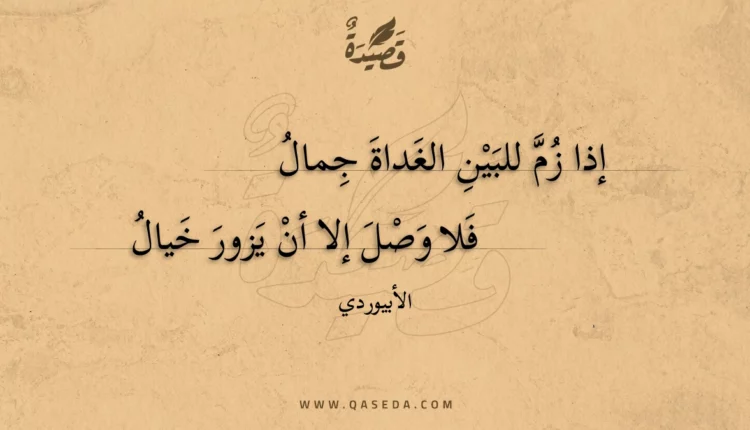 قَصِيدَةٌ
إذا زُمَّ للبَيْنِ الغَداةَ جِمالُ
فَلا وَصْلَ إلا أنْ يَزورَ خَيالُ
الأبيوردي
WWW.QASEDA.COM